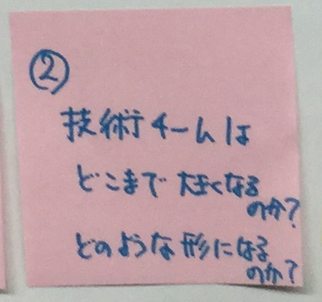 ②
技術チームは
どこまで大きくなる
のか?
どのような形になる
のか?